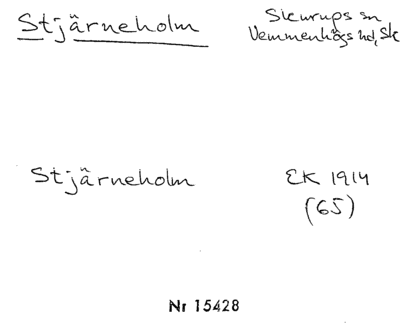 Stjärneholm
Skurups sn
Vemmenhögs hd, Sk
Stjärneholm
EK 1914
(65)
Nr 15428